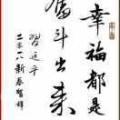 幸福都是
奋斗出来
习近平
二零一八新春贺辞